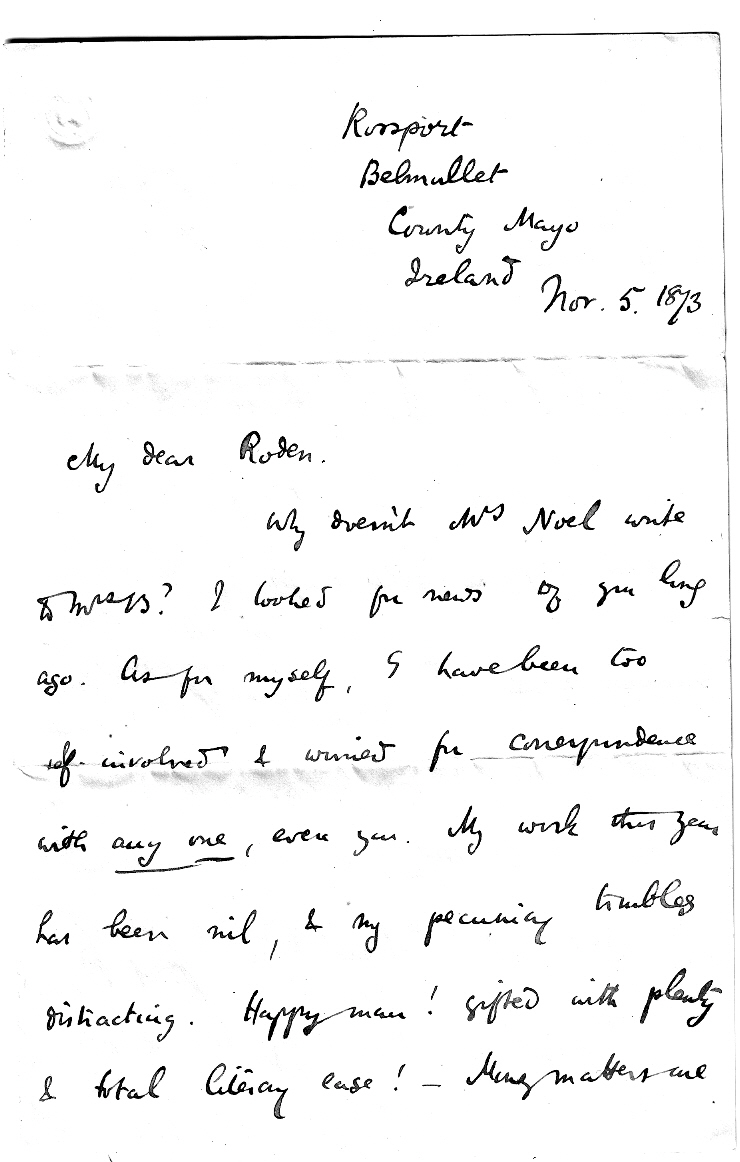 Rossport
Belmullet
County Mayo
Ireland
Nov. 5. 1873
My dear Roden.
Why doesn't Mrs Noel write
to Mrs B? I looked for news of you long
ago. As for myself, I have been too
self-involved & worried for correspondence
with any one, even you. My work this year
has been nil, & my pecuniary troubles
distracting. Happy man! gifted with plenty
& total literary ease! – Money matters are